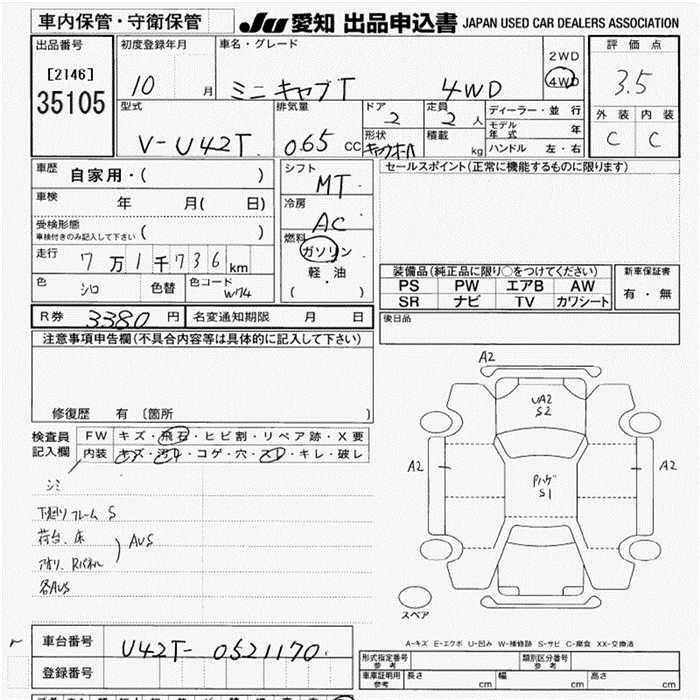 車内保管・守衛保管
JU 愛知 出品申込書 JAPAN USED CAR DEALERS ASSOCIATION
出品番号
[2146]
35105
初度登録年月
10 月
車名・グレード
ミニキャブT 4WD
2WD
4WD
評価点
3.5
外装 内装
C C
型式
V-U42T
排気量
0.65 cc
ドア
2
定員
2 人
形状
積載
kg
ディーラー・並行
モデル年式 年
ハンドル 左・右
車歴
自家用・( )
車検
年 月( 日)
受検形態
車検付きのみ記入して下さい ( )
走行
7万1千736km
色
シロ
色替
色コード
W74
シフト
MT
冷房
AC
燃料
ガソリン
軽・油
( )
セールスポイント(正常に機能するものに限ります)
装備品(純正品に限り○をつけてください)
PS PW エアB AW
SR ナビ TV カワシート
新車保証書
有・無
R券 3380 円
名変通知期限 月 日
後日品
注意事項申告欄(不具合内容等は具体的に記入して下さい)
修復歴 有 [箇所 ]
検査員記入欄
FW キズ・飛石・ヒビ割・リペア跡・X要
内装 キズ・汚れ・コゲ・穴・スレ・キレ・破レ
シミ
下廻りフレームS
荷台、床
アオリ、Rパネル
AUS
各AUS
A2
UA2
S2
A2
A2
Pハゲ
S1
スペア
A-キズ E-エクボ U-凹み W-補修跡 S-サビ C-腐食 XX-交換済
車台番号
U42T-0521170
登録番号
形式指定番号
参考
類別区分番号
参考
車庫証明用
参考
長さ cm 幅 cm 高さ cm